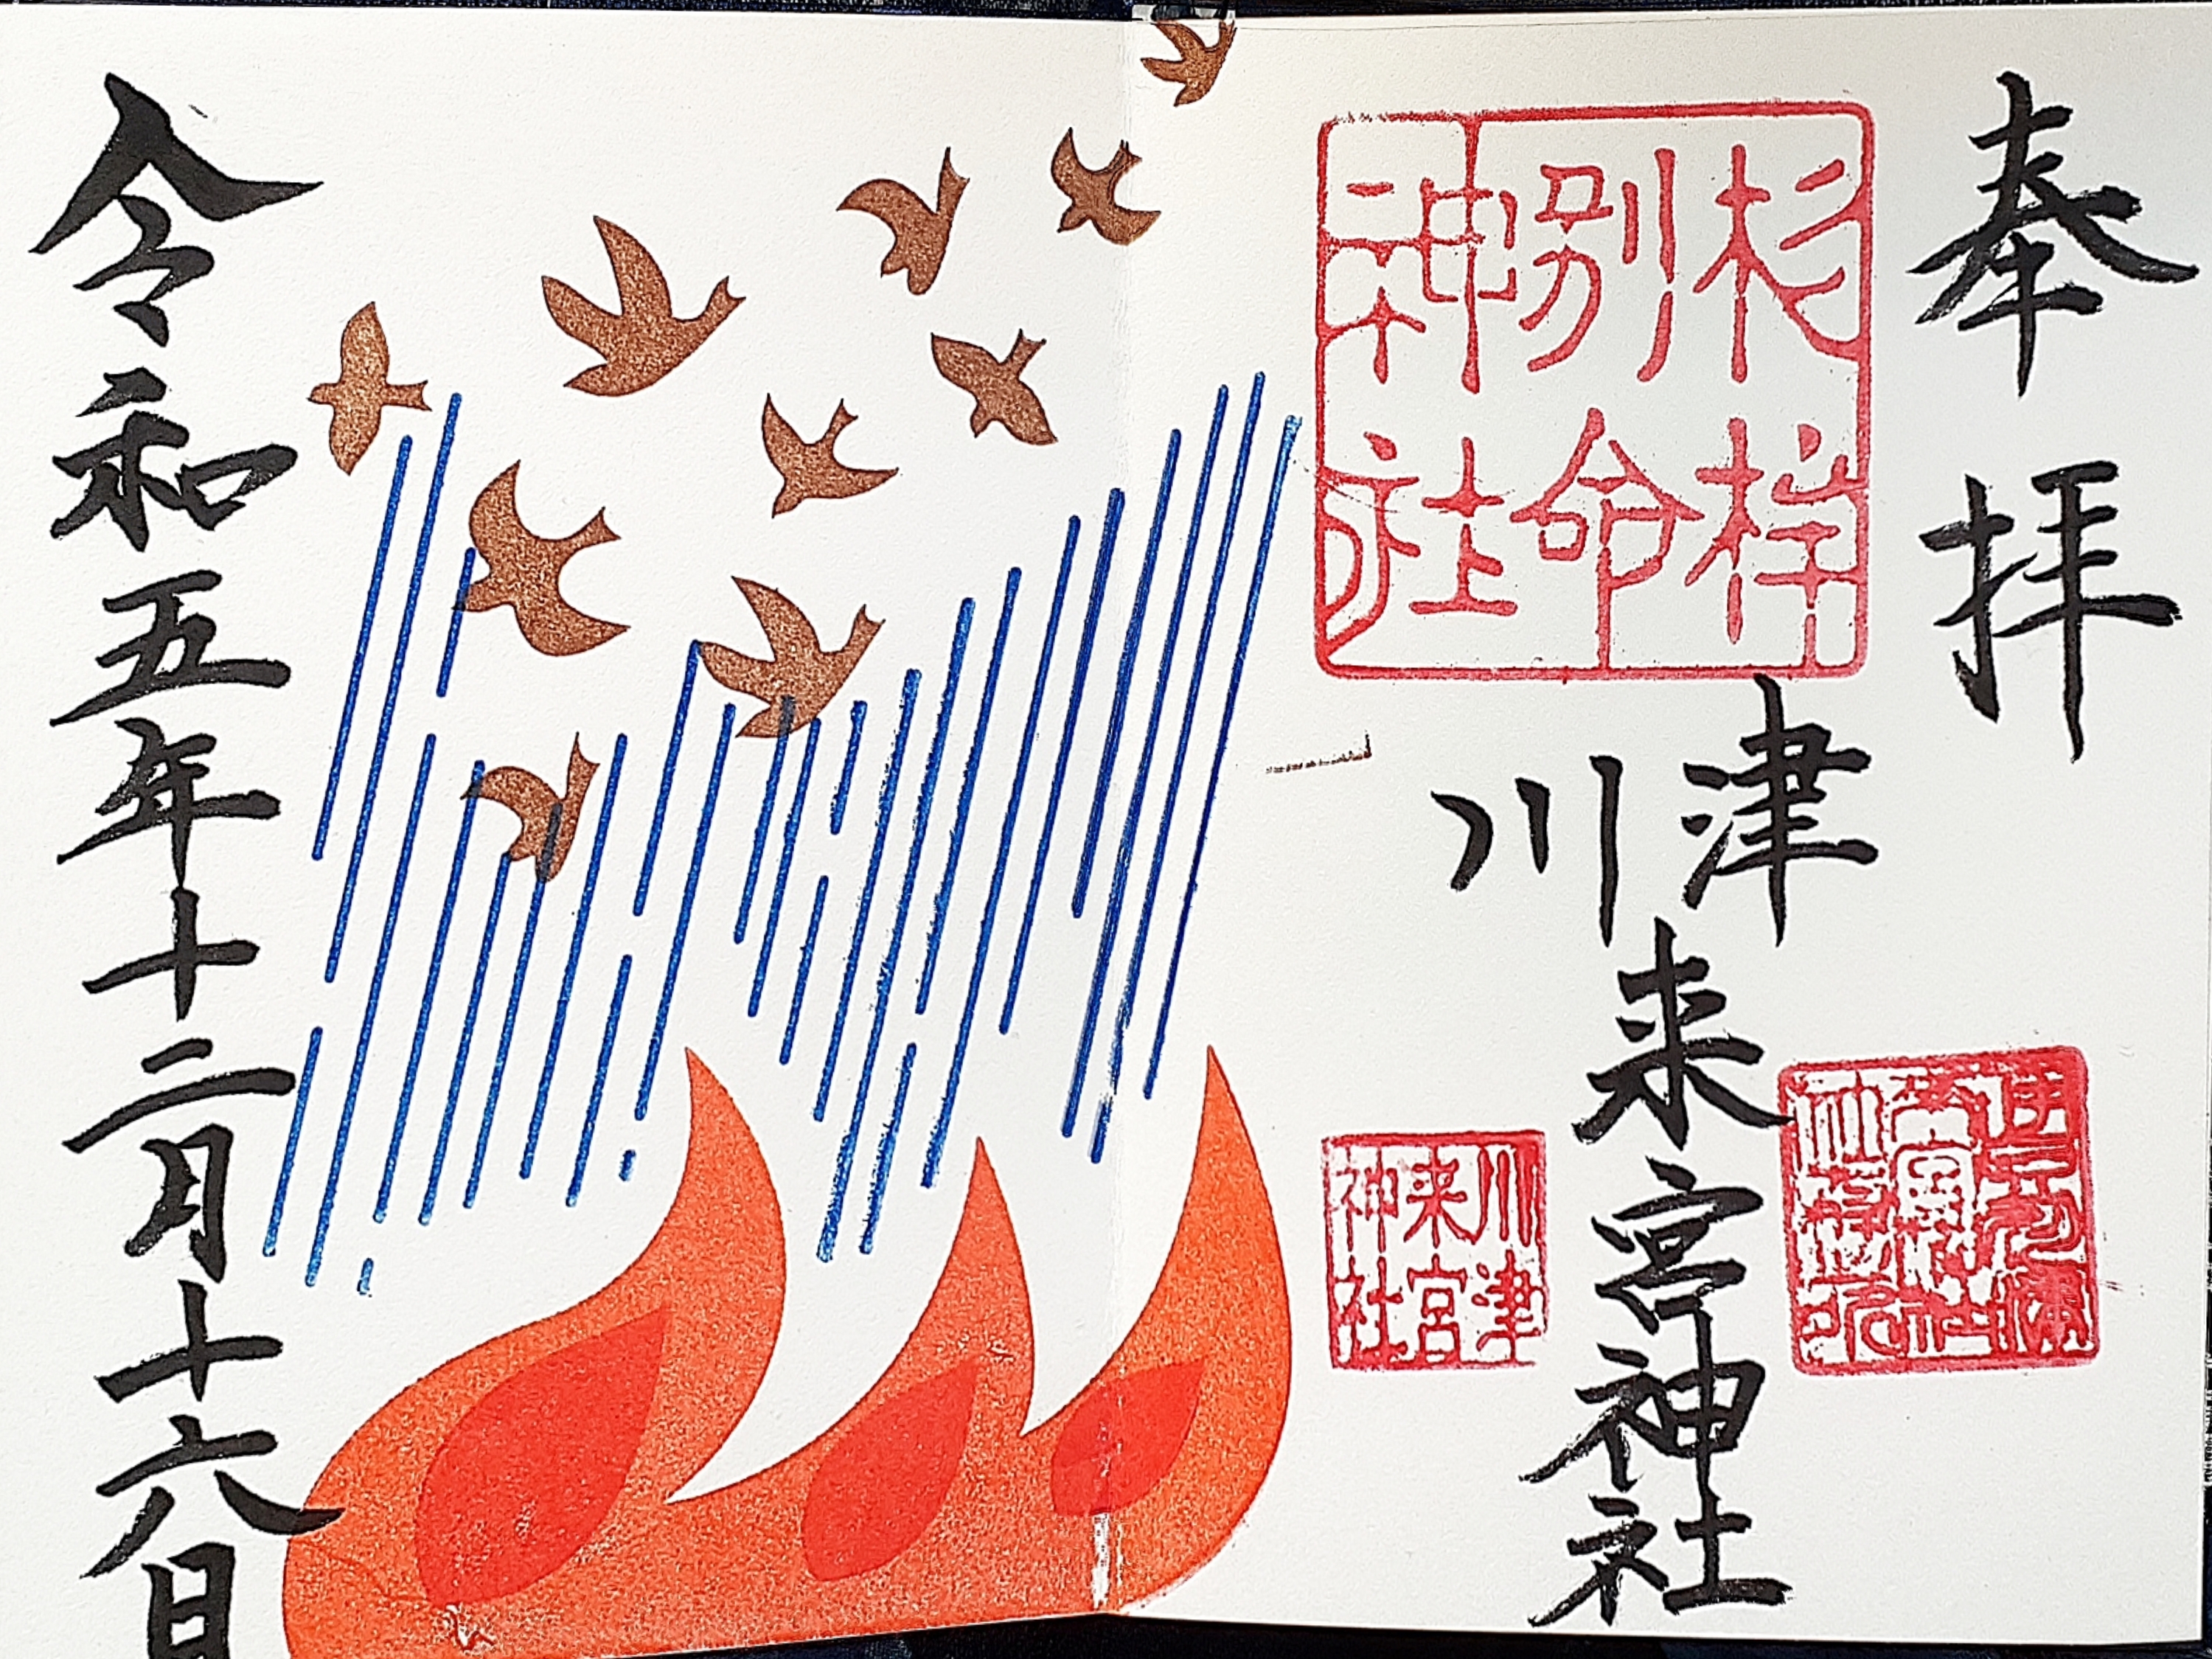 奉拝
杉桙
別命
神社
川津
来宮神社
川津
来宮
神社
令和五年十二月十六日